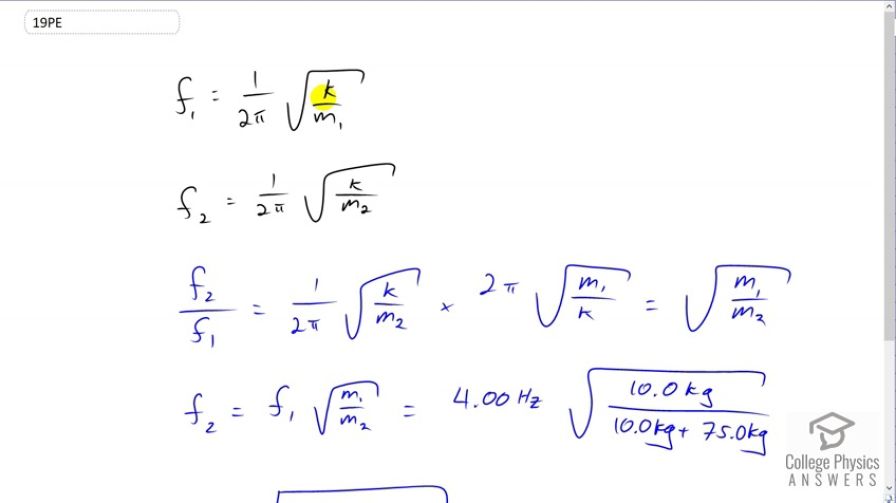 19PE
f₁ = 1/2π √(k/m₁)
f₂ = 1/2π √(k/m₂)
f₂/f₁ = 1/2π √(k/m₂) × 2π √(m₁/k) = √(m₁/m₂)
f₂ = f₁ √(m₁/m₂) = 4.00 Hz √(10.0 kg/10.0 kg + 75.0 kg)
College Physics
ANSWERS